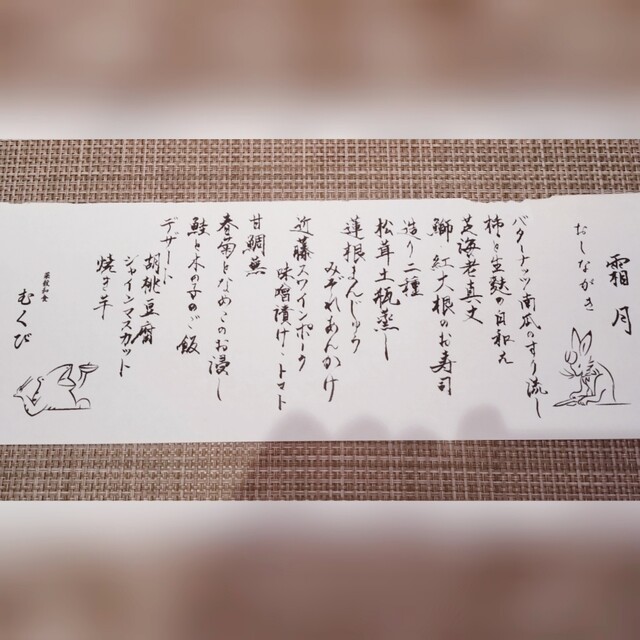 霜月
おしながき
バターナッツ南瓜のすり流し
柿と生麩の白和え
芝海老真丈
鰤紅大根のお寿司
造り二種
松茸土瓶蒸し
蓮根まんじゅう
みぞれあんかけ
近藤スワインポーク
味噌漬け・トマト
甘鯛蕪
春菊となめこのお浸し
鮭と木の子のご飯
デザート
胡桃豆腐
シャインマスカット
焼き芋
むくび